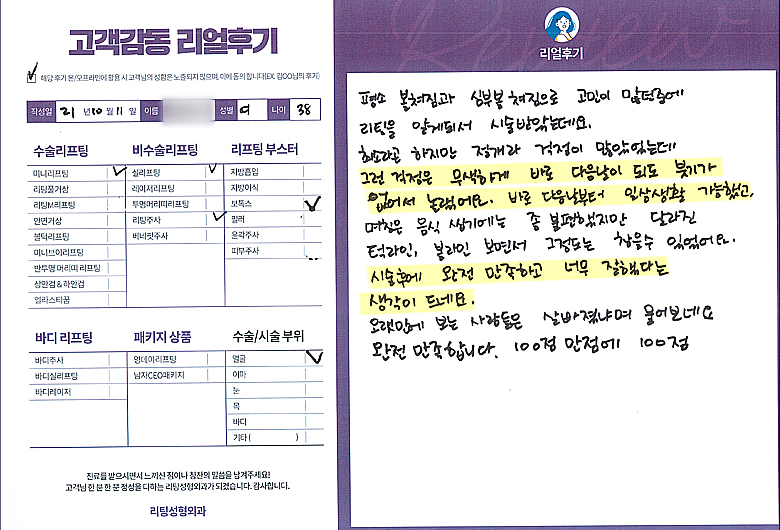 고객감동 리얼후기
해당 후기 온/오프라인에 활용 시 고객님의 성함은 노출되지 않으며, 이에 동의 합니다(EX. 김OO님의 후기)
작성일 21 년 10 월 11 일 이름 성별 여 나이 38
수술리프팅
미니리프팅
리팅풀거상
리팅M리프팅
안면거상
볼턱리프팅
미니브이리프팅
반투명 머리띠 리프팅
상안검 & 하안검
엘라스티꿈
비수술리프팅
실리프팅
레이저리프팅
투명머리띠리프팅
리팅주사
비네핏주사
리프팅 부스터
지방흡입
지방이식
보톡스
필러
윤곽주사
피부주사
바디 리프팅
바디주사
바디실리프팅
바디레이저
패키지 상품
원데이리프팅
남자CEO패키지
수술/시술 부위
얼굴
이마
눈
목
바디
기타 ( )
진료를 받으시면서 느끼신 점이나 칭찬의 말씀을 남겨주세요!
고객님 한 분 한 분 정성을 다하는 리팅성형외과가 되겠습니다. 감사합니다.
리팅성형외과
Review
리얼후기
평소 볼쳐짐과 심부볼 쳐짐으로 고민이 많던중에
리팅을 알게되서 시술받았는데요.
최소라곤 하지만 절개라 걱정이 많았었는데
그런 걱정은 무색하게 바로 다음날이 되도 붓기가
없어서 놀랬어요. 바로 다음날부터 일상생활 가능했고,
며칠은 음식 씹기에는 좀 불편했지만 달라진
턱라인, 볼라인 보면서 그정도는 참을수 있었어요.
시술후에 완전 만족하고 너무 잘했다는
생각이 드네요.
오랫만에 보는 사람들은 살빠졌냐며 물어보네요
완전 만족합니다. 100점 만점에 100점